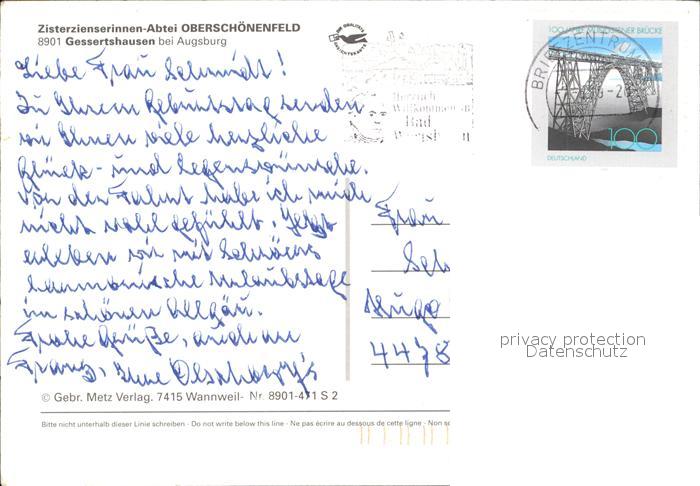 Zisterzienserinnen-Abtei OBERSCHÖNENFELD
8901 Gessertshausen bei Augsburg
Liebe Frau Schmidt!
Zu Ihrem Geburtstag senden
wir Ihnen viele herzliche
Glück- und Segenswünsche.
Vor der Fahrt habe ich mich
nicht wohl gefühlt. Jetzt
erleben wir mit
harmonische Urlaubstage
im schönen Allgäu.
Frohe Grüße, auch an
Franz, Ihre
© Gebr. Metz Verlag. 7415 Wannweil- Nr. 8901-471 S 2
Bitte nicht unterhalb dieser Linie schreiben · Do not write below this line · Ne pas écrire au dessous de cette ligne · Non
Herzlich
Willkommen
Bad
BRIEFZENTRUM
100 JAHRE BRÜCKE
100
DEUTSCHLAND
Frau
Hugo
4478
privacy protection
Datenschutz